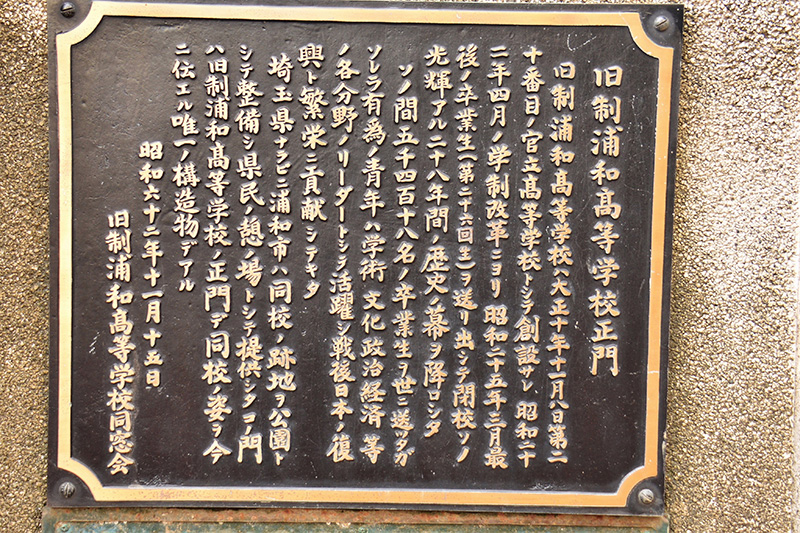 旧制浦和髙等学校正門
旧制浦和髙等学校ハ大正十年十一月八日第二
十番目ノ官立髙等学校トシテ創設サレ 昭和二十
二年四月ノ学制改革ニヨリ 昭和二十五年三月最
後ノ卒業生(第二十六回生)ヲ送リ出シテ閉校ソノ
光輝アル二十八年間ノ歴史ノ幕ヲ降ロシタ
ソノ間五千四百十八名ノ卒業生ヲ世ニ送ッタガ
ソレラ有為ノ青年ハ学術 文化政治経済 等
ノ各分野ノリーダートシテ活躍シ戦後日本ノ復
興ト繁栄ニ貢献シテキタ
埼玉県ナラビニ浦和市ハ同校ノ跡地ヲ公園ト
シテ整備シ県民ノ憩ノ場トシテ提供シタコノ門
ハ旧制浦和髙等学校ノ正門デ同校ノ姿ヲ今
ニ伝エル唯一ノ構造物デアル
昭和六十二年十一月十五日
旧制浦和髙等学校同窓会